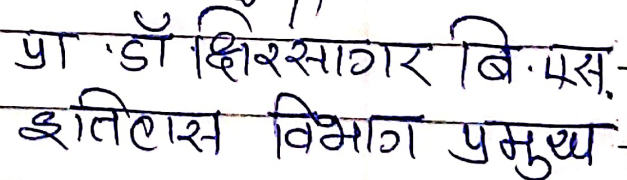 प्रा.डॉ क्षिरसागर बि.एस.
इतिहास विभाग प्रमुख